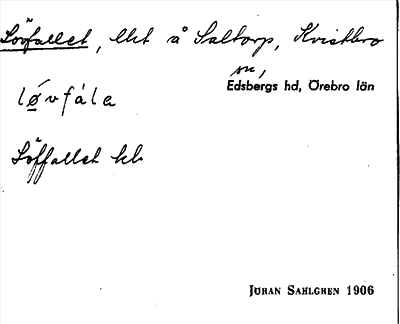 Lövfallet, llet å Saltorp, Kvistbro
sn,
Edsbergs hd, Örebro län
løvfála
Löffallet kb
JÖRAN SAHLGREN 1906